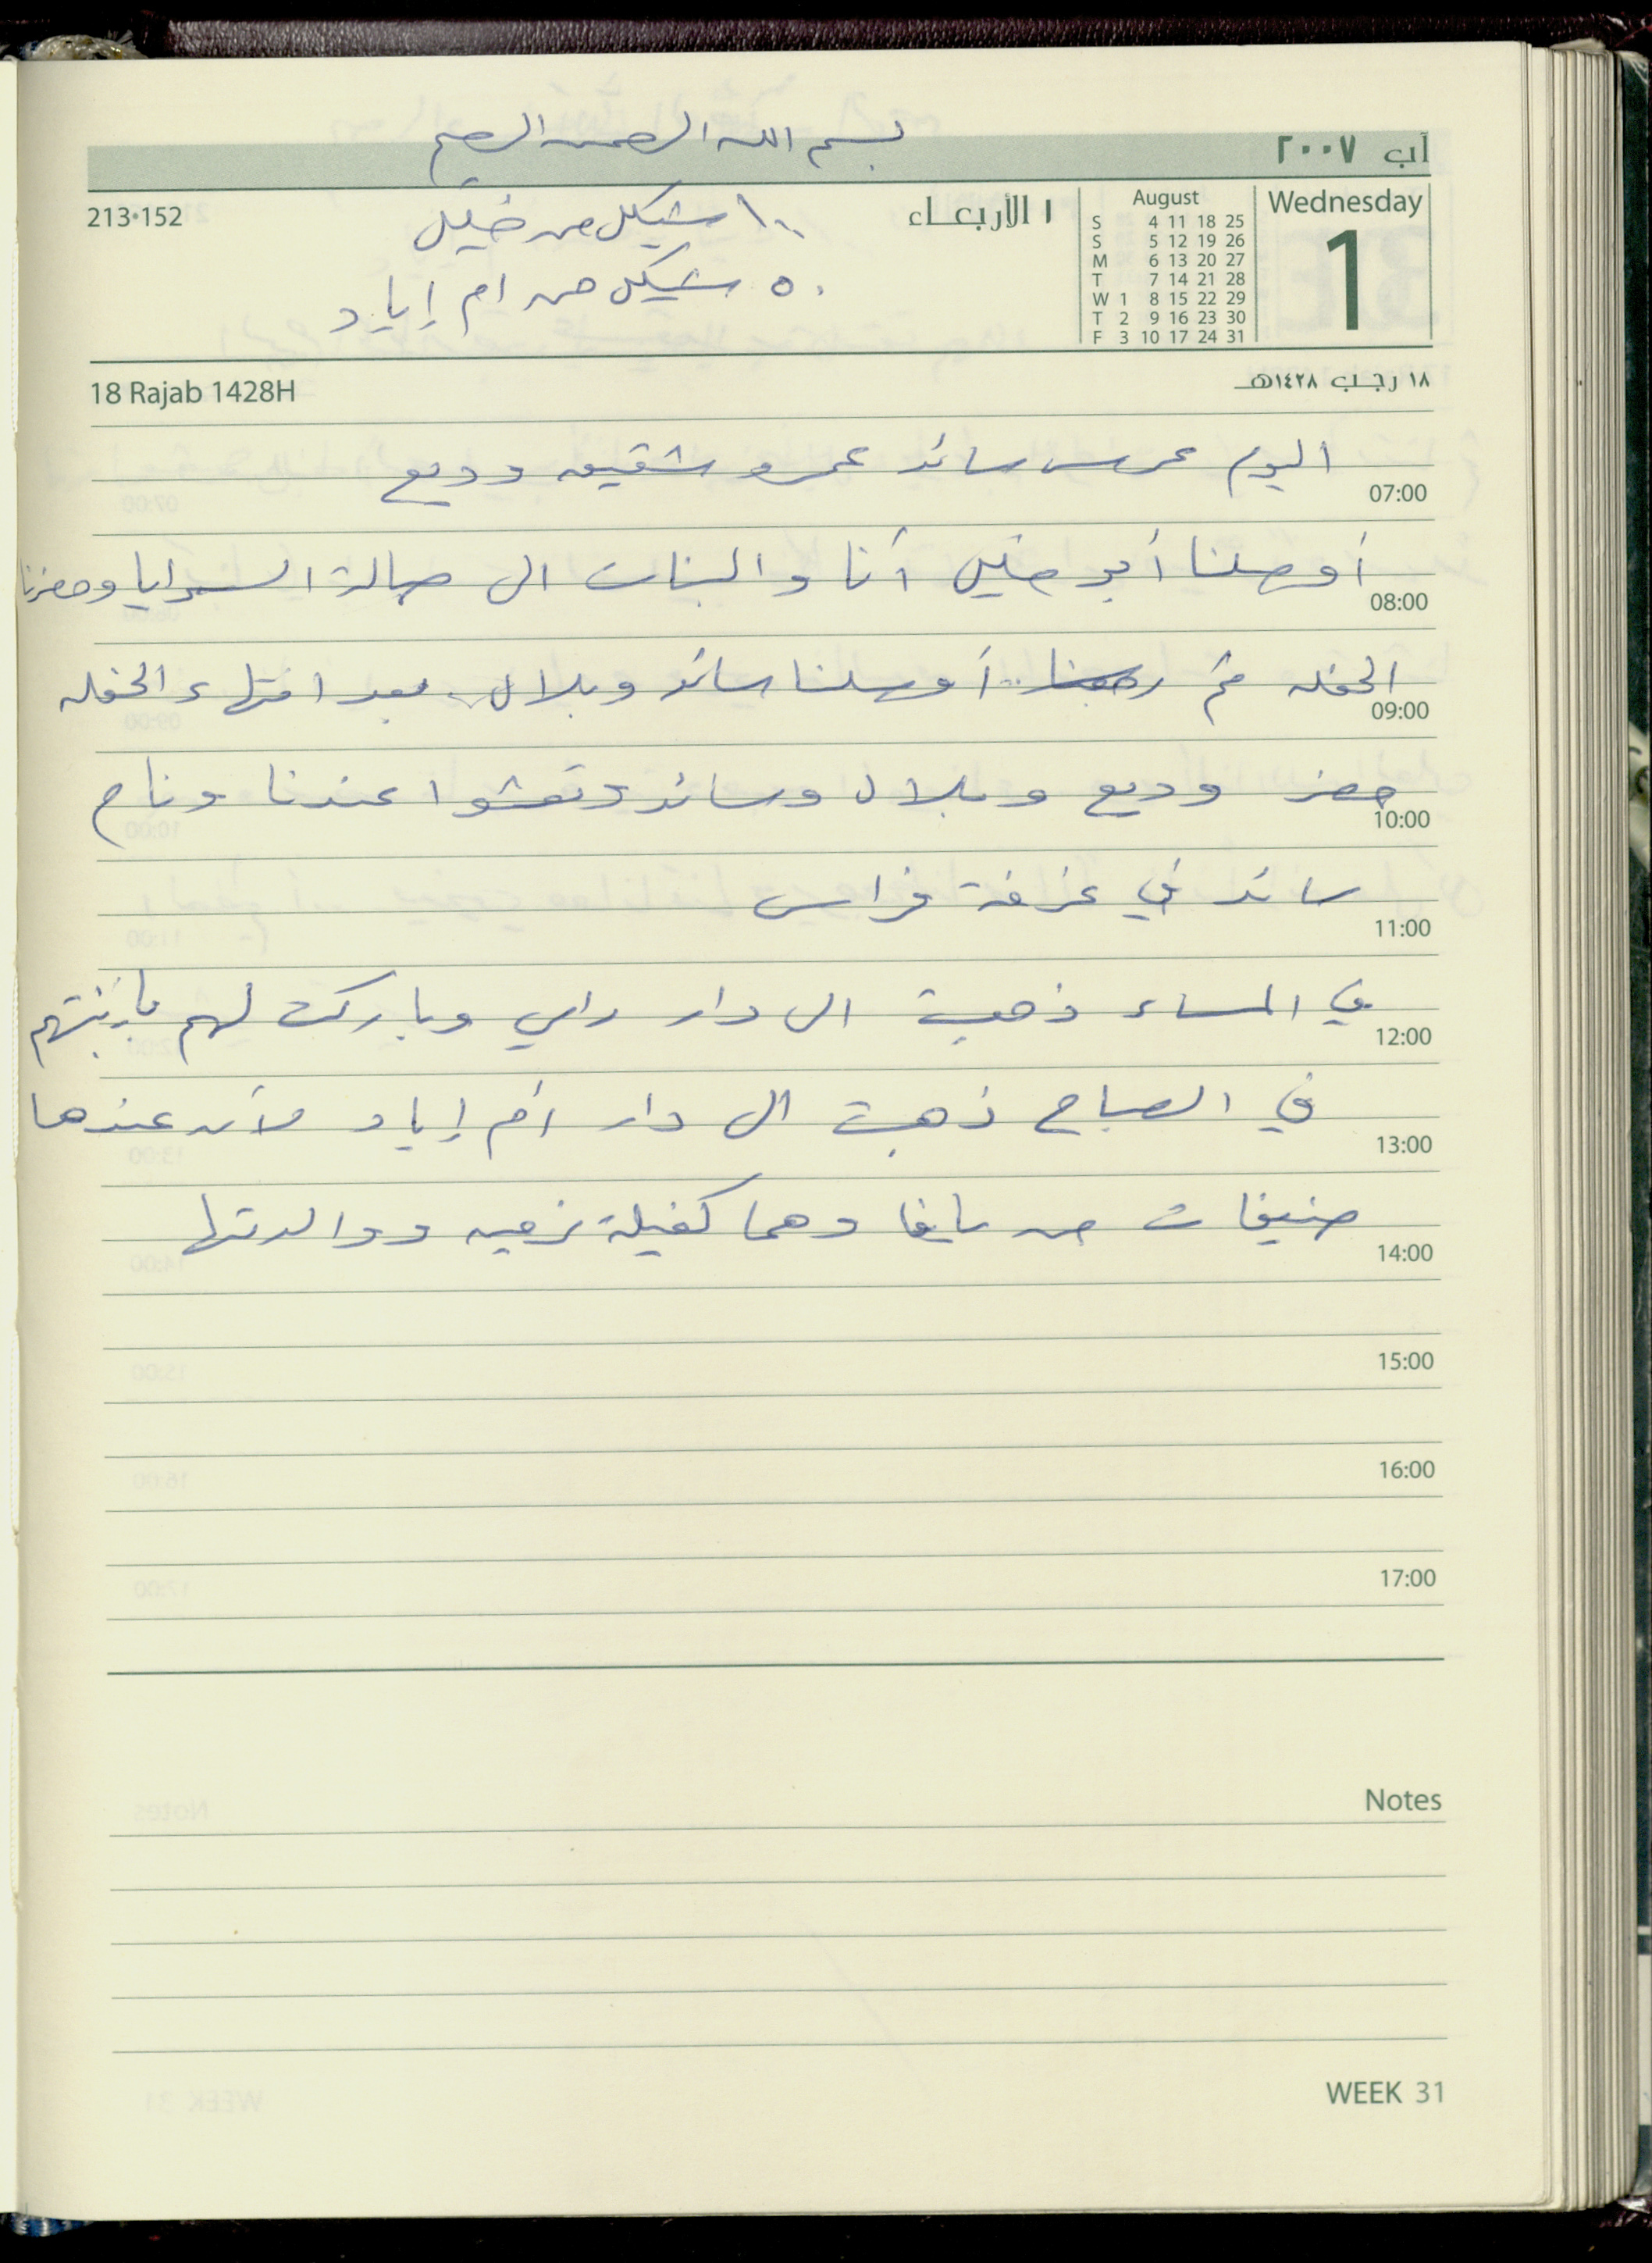 بسم الله الرحمن الرحيم
آب ٢٠٠٧
213•152
١٠٠ شيكل من خليل
٥٠ شيكل من ام إياد
١ الأربعاء
August
S 4 11 18 25
S 5 12 19 26
M 6 13 20 27
T 7 14 21 28
W 1 8 15 22 29
T 2 9 16 23 30
F 3 10 17 24 31
Wednesday
1
18 Rajab 1428H
١٨ رجب ١٤٢٨هـ
اليوم عرس سائد عمرو شقيق وديع
07:00
أوصلنا أبو خليل أنا والبنات الى صالة السرايا وحضرنا
08:00
الحفله ثم رجعنا.. أوصلنا سائد وبلال. بعد انتهاء الحفله
09:00
حضر وديع وبلال وسائد وتعشوا عندنا ونام
10:00
سائد في غرفة فراس
11:00
في المساء ذهبت الى دار رامي وباركت لهم بإبنتهم
12:00
في الصباح ذهبت الى دار أم إياد لأن عندها
13:00
ضيفات من يافا وهما كفيلة نرمين ووالدتها
14:00
15:00
16:00
17:00
Notes
WEEK 31